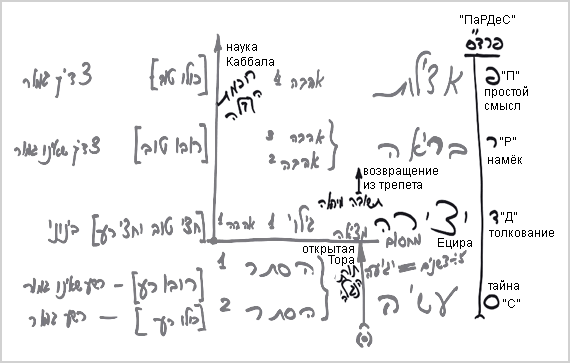 "ПаРДеС"
פרד"ס
наука
Каббала
חכמת
הקבלה
אצילות
אהבה 4
[כולו טוב]
צדיק גמור
פ "П"
простой
смысл
בריאה
אהבה 3
אהבה 2
[רובו טוב]
צדיק שאינו גמור
ר "Р"
намёк
возвращение
из трепета
תשובה מיראה
יצירה
Ецира
מחסום
מציאה
גילוי 1
אהבה 1
[חצי טוב וחצי רע]
בינוני
ד "Д"
толкование
открытая
Тора
יגיעה
עשיה
הסתר 1
[רובו רע] – רשע שאינו גמור
הסתר 2
[כולו רע] – רשע גמור
тайна
ס "С"